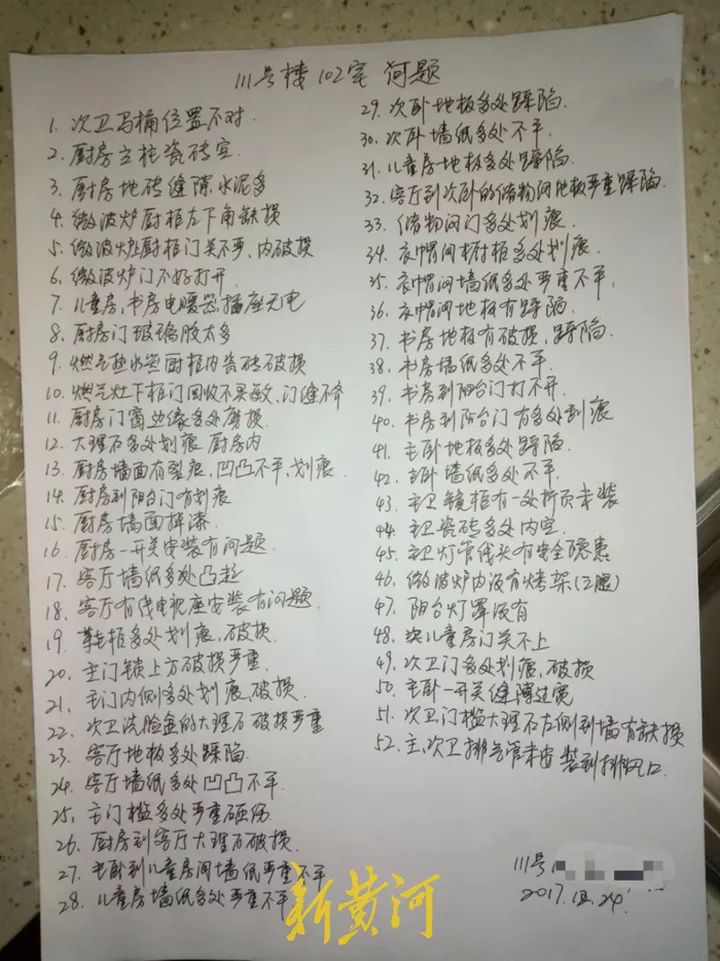 111号楼102室 问题
1. 次卫马桶位置不对.
2. 厨房立柱瓷砖空
3. 厨房地砖缝隙水泥多
4. 微波炉厨柜左下角缺损
5. 微波炉厨柜门关不严,内破损
6. 微波炉门不好打开.
7. 儿童房,书房电暖器插座无电
8. 厨房门玻璃胶太多
9. 燃气热水器厨柜内瓷砖破损
10. 燃气灶下柜门回收不灵敏、门缝不
11. 厨房门窗边缘多处磨损.
12. 大理石多处划痕 厨房内
13. 厨房墙面有裂痕,凹凸不平,划痕.
14. 厨房到阳台门有划痕
15. 厨房墙面掉漆.
16. 厨房一开关安装有问题.
17. 客厅墙纸多处凸起
18. 客厅有线电视座安装有问题.
19. 鞋柜多处划痕,破损.
20. 主门锁上方破损严重.
21. 主门内侧多处划痕,破损.
22. 次卫洗脸盆的大理石破损严重
23. 客厅地板多处踩陷.
24. 客厅墙纸多处凹凸不平.
25. 主门槛多处严重砸伤
26. 厨房到客厅大理石破损.
27. 书卧到儿童房间墙纸严重不平
28. 儿童房墙纸多处严重不平
29. 次卧地板多处踩陷.
30. 次卧墙纸多处不平.
31. 儿童房地板多处踩陷.
32. 客厅到次卧的储物间地板严重踩陷.
33. 储物间门多处划痕.
34. 衣帽间衬柜多处划痕.
35. 衣帽间墙纸多处严重不平.
36. 衣帽间地板有踩陷.
37. 书房地板有破损,踩陷.
38. 书房墙纸多处不平.
39. 书房到阳台门打不开.
40. 书房到阳台门有多处划痕
41. 主卧地板多处踩陷.
42. 主卧墙纸多处不平.
43. 主卫镜柜有一处折页未装
44. 主卫瓷砖多处内空.
45. 主卫灯管线头有安全隐患
46. 微波炉内没有烤架(2层)
47. 阳台灯罩没有
48. 次儿童房门关不上
49. 次卫门多处划痕,破损
50. 主卧一开关缝隙过宽
51. 次卫门槛大理石左侧到墙有缺损
52. 主、次卫排气管未安装到排风口.
111号
2017.12.24
新黄河